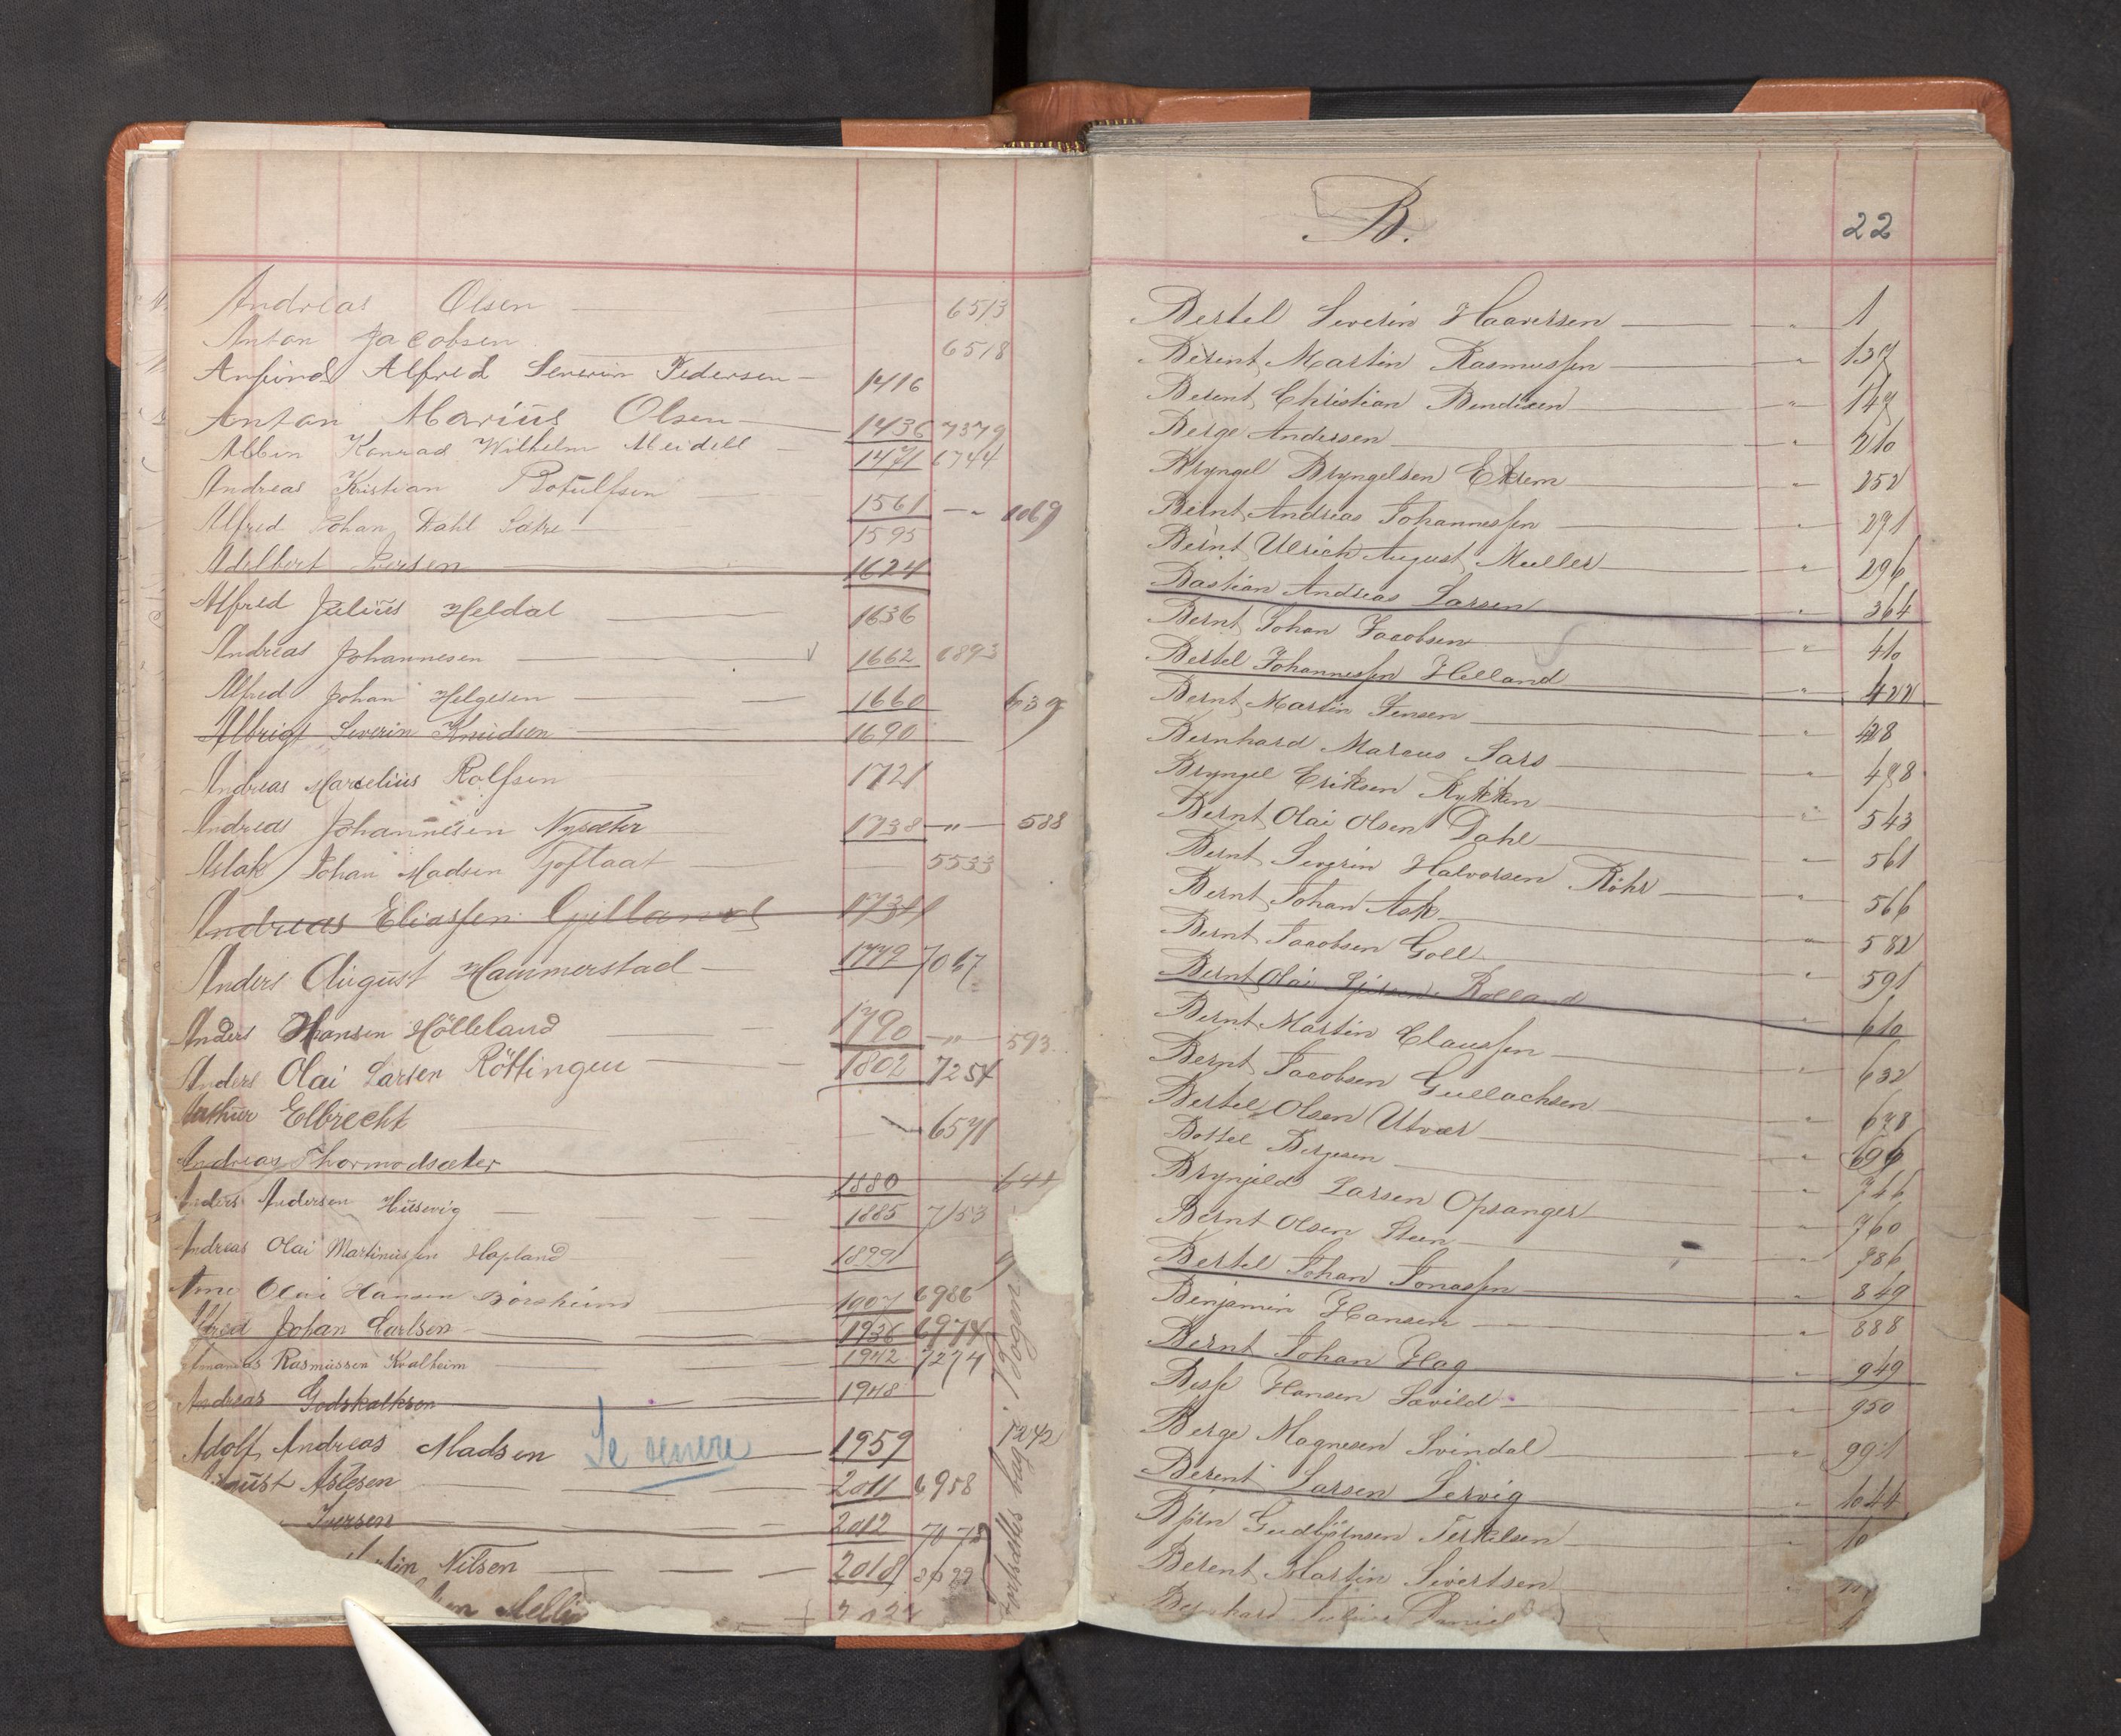 Andreas Olsen 6513
Anton Jacobsen 6518
Anfind Alfred Severin Pedersen 1416
Anton Marius Olsen 1436 7379
Albin Konrad Wilhelm Meidell 1471 6744
Andreas Kristian Botulfsen 1561 -"- 1069
Alfred Johan Dahl Sætre 1595
Adelbert Iversen 1624
Alfred Julius Heldal 1636
Andreas Johannesen 1662 6893
Alfred Johan Helgesen 1660 639
Albrigt Severin Knudsen 1690
Andreas Marselius Rolfsen 1721
Andreas Johannesen Nysæter 1738 -"- 588
Aslak Johan Madsen Toftaat 5533
Andreas Eliassen Gjilland
Anders August Hammerstad 1772 7067
Anders Hansen Hölleland 1790 -"- 593
Anders Olai Larsen Röttingen 1802 7254
Arthur Elbrecht 6571
Andreas Thormodsæter 1880 644
Anders Andersen Husevig 1885 7153
Andreas Olai Martinussen Hopland 1899
Arne Olai Hansen Börsheim 1907 6986
Alfred Johan Carlsen 1936 6974
Amanias Rasmussen Kvalheim 1942 7274
Andreas Godskalksen 1948
Adolf Andreas Madsen Se senere 1959 1242
August Aslesen 2011 6958
Iversen 2012 7073
Martin Nilsen 2018
fortsættes bag i Bogen
B. 22
Bertel Severin Haaversen " 1
Berent Martin Rasmussen " 137
Berent Christian Bendixen " 147
Berge Andersen 210
Bryngel Bryngelsen Ekrem " 252
Bernt Andreas Johannessen " 291
Bernt Ulrich August Muller " 296
Bastian Andreas Larsen " 364
Bernt Johan Jacobsen " 410
Bertel Johannessen Helland " 422
Bernt Martin Jensen " 428
Bernhard Marcus Lars " 478
Bryngel Eriksen Rykken " 543
Bernt Olai Olsen Dahl " 561
Bernt Severin Halvorsen Röhr " 566
Bernt Johan Ask " 582
Bernt Jacobsen Goll " 591
Bernt Olai Rolland " 610
Bernt Martin Claussen " 632
Bernt Jacobsen Gullachsen " 678
Bertel Olsen Utvær " 696
Bottel Birgesen " 746
Brynjild Larsen Opsanger " 760
Bernt Olsen Steen " 786
Bertel Johan Jonassen " 849
Benjamin Hansen " 888
Bernt Johan Hag " 949
Besse Hansen Løvild " 950
Berge Magnesen Svindal " 991
Berent Larsen Lervig " 1044
Björn Gudbjörnsen Terkilsen "
Berent Martin Sivertsen "
Bernhard Julius Daniel